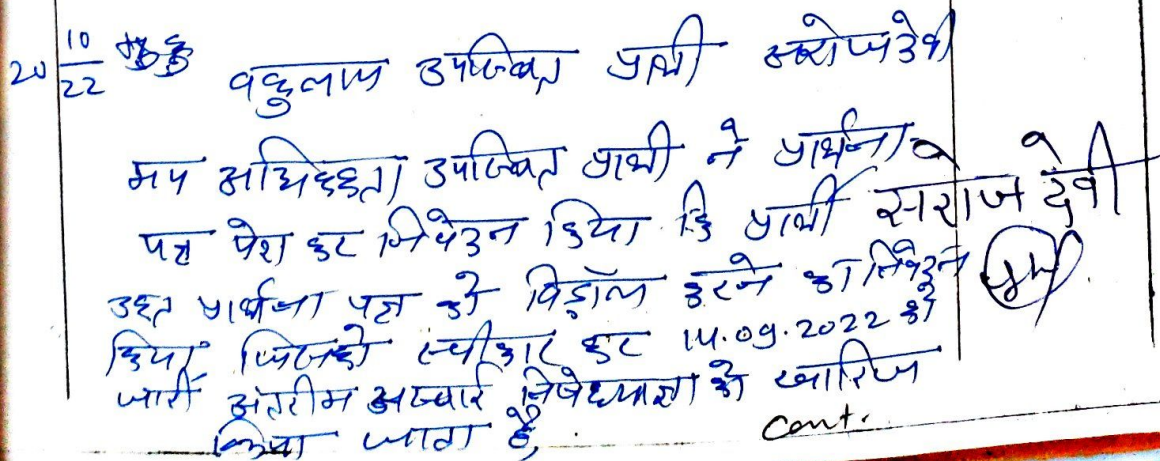 20 10/22
वहुलाफ उपस्थित प्रार्थी सरोज देवी
मय अधिवक्ता उपस्थित प्रार्थी ने प्रार्थना
पत्र पेश कर निवेदन किया कि प्रार्थी
उक्त प्रार्थना पत्र को विड्रॉल करने का निवेदन
किया जिसको स्वीकार कर 14.09.2022 को
जारी अंतरीम अस्थाई निषेधाज्ञा को खारिज
किया जाता है,
cont.
सरोज देवी